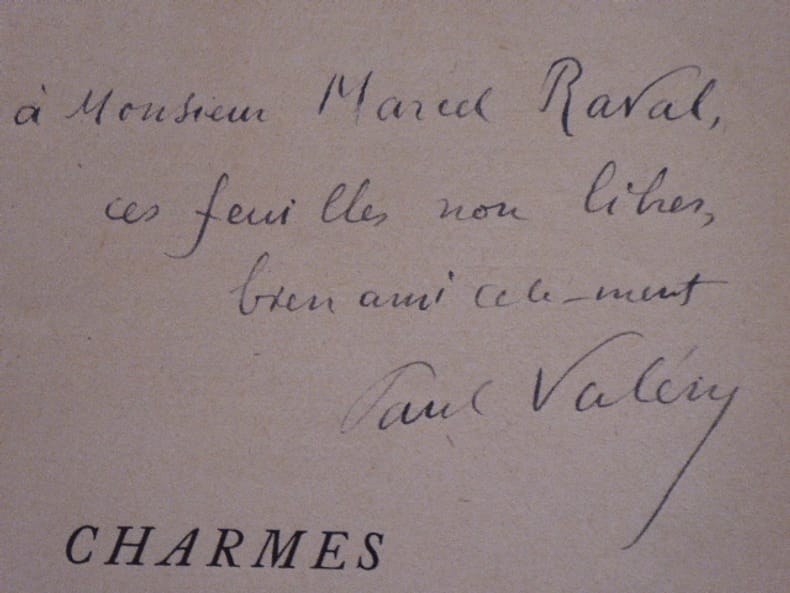 à Monsieur Marcel Raval,
ces feuilles non libres,
bien amicalement
Paul Valéry
CHARMES